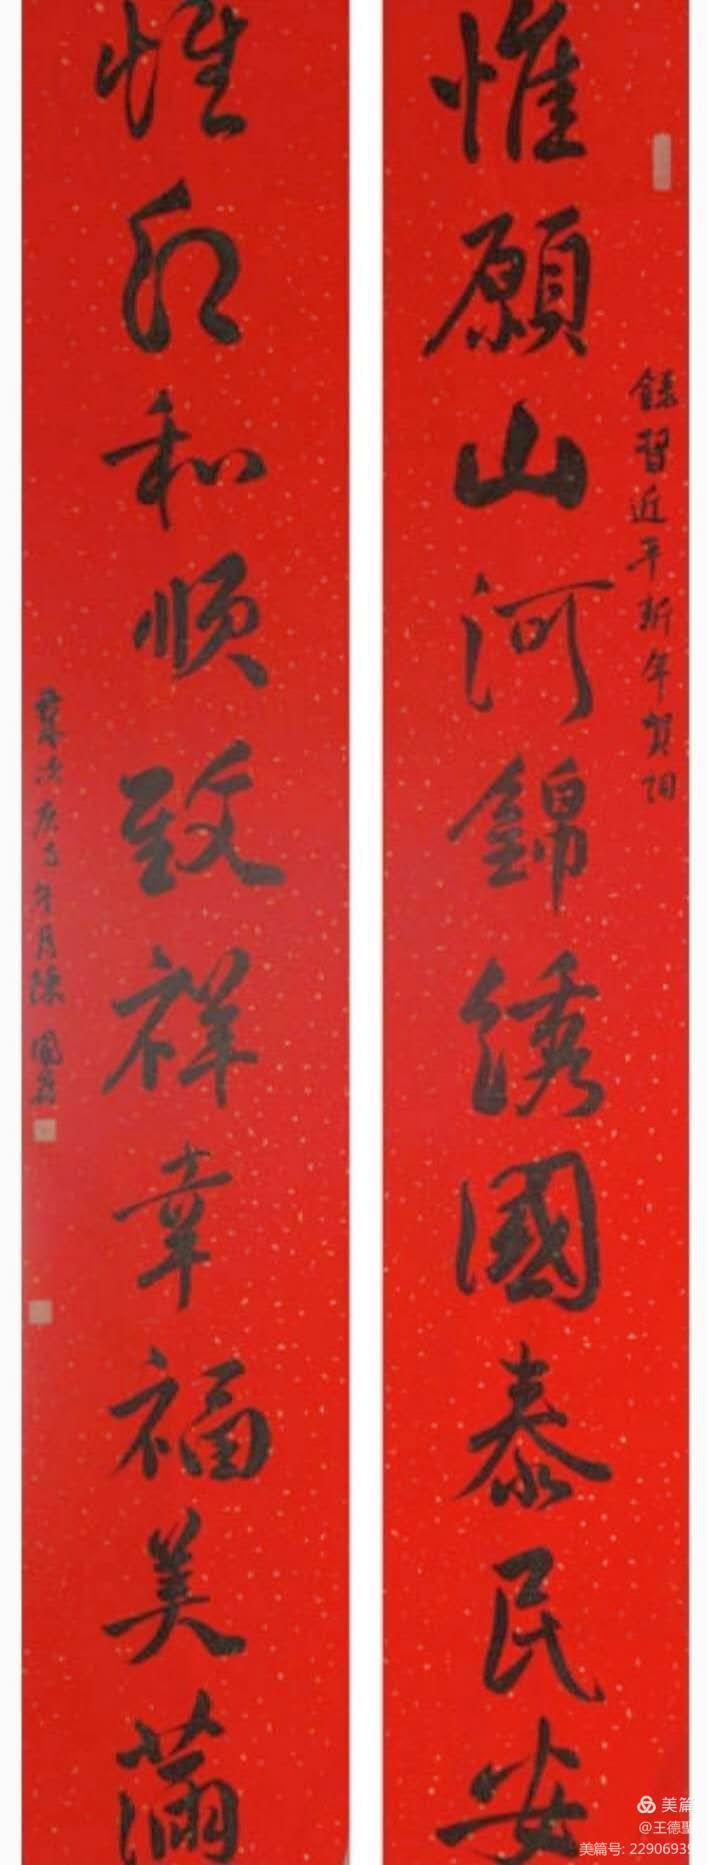 錄習近平新年賀詞
惟願山河錦綉國泰民安
惟願和順致祥幸福美滿
歲次庚子年月陳鳳
美篇
@王德聖
美篇号: 2290693